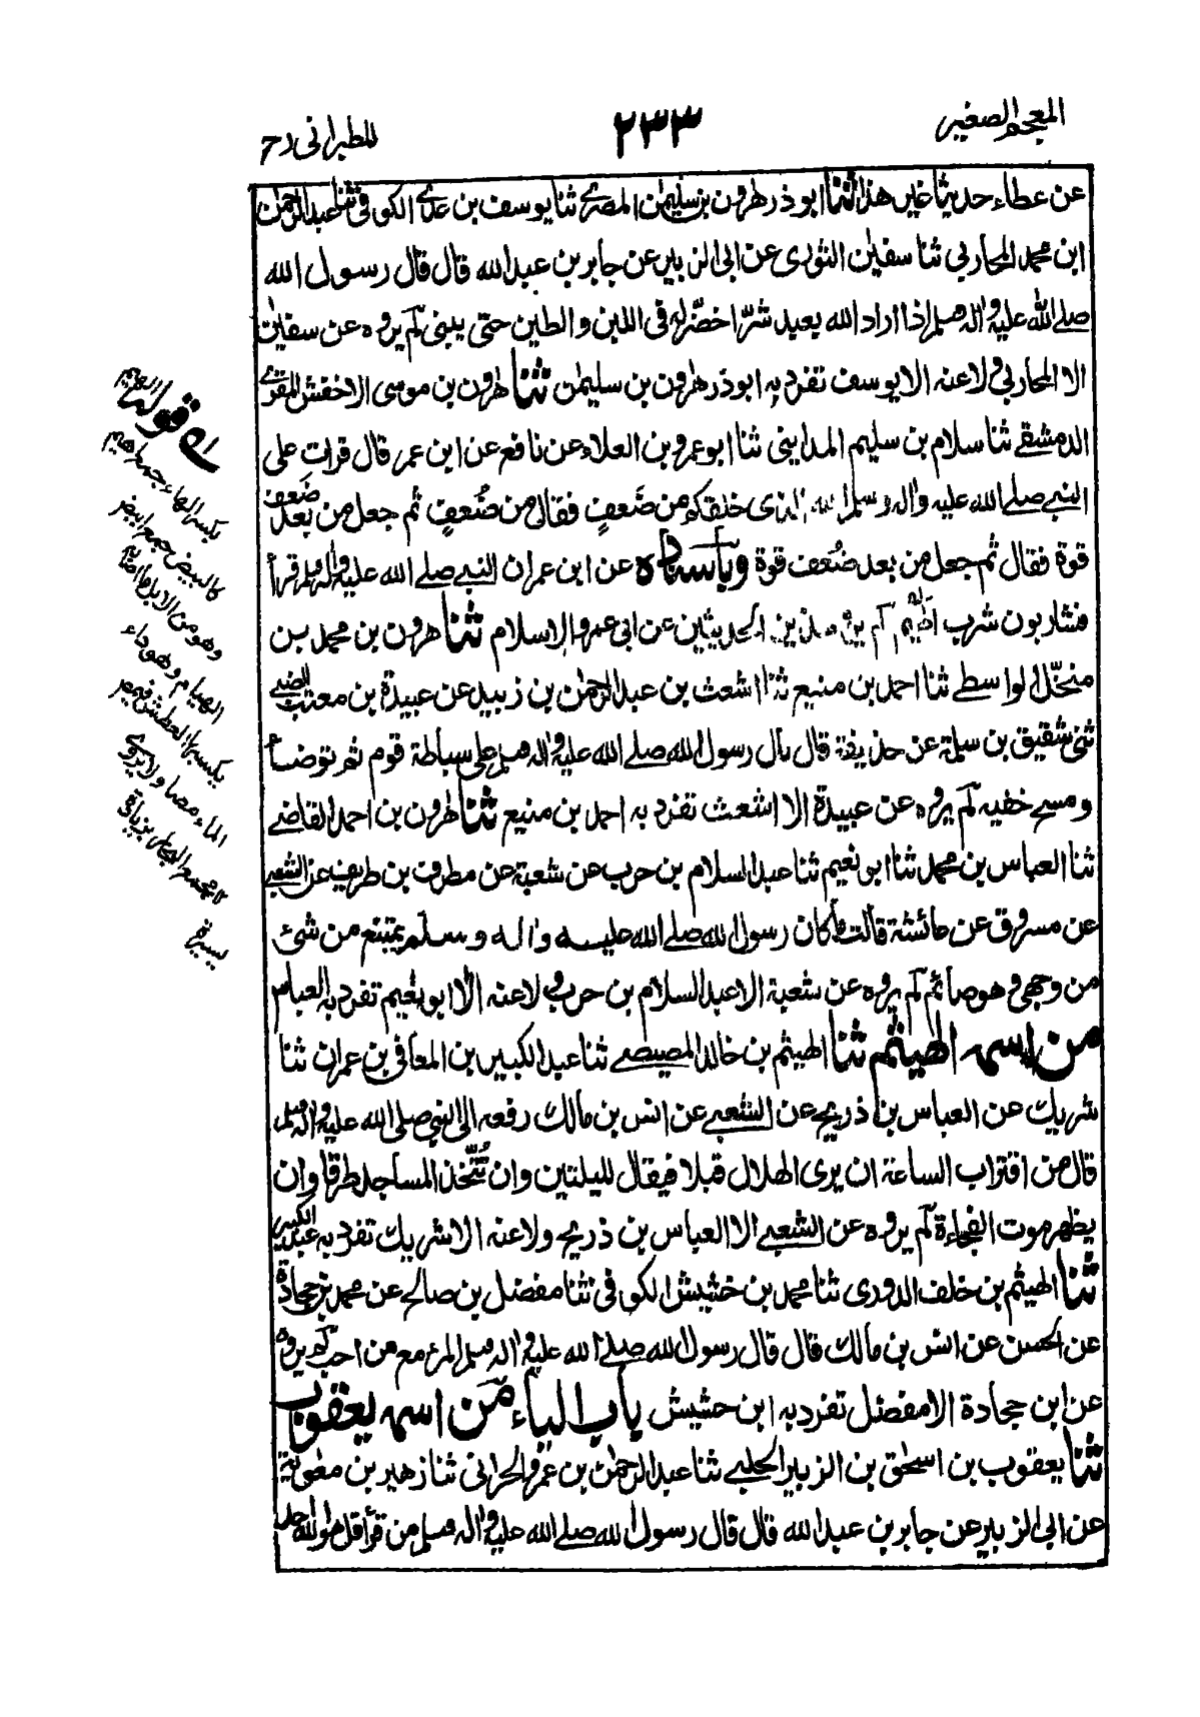 المعجم الصغير
٢٣٣
للطبرانى رح
عن عطاء حديثا غير هذا ثنا ابو ذر هرون بن سليمٰن المصرے ثنا يوسف بن عدے الكوفى ثنا عبد الرحمٰن
ابن محمد المحاربى ثنا سفيٰن الثورى عن ابى الزبير عن جابر بن عبد الله قال قال رسول الله
صلے الله عليه واله وسلم اذا اراد الله بعبد شرّا خضّر له فى اللبن والطين حتى يبنى لم يروه عن سفيٰن
الا المحاربى ولا عنه الا يوسف تفرد به ابو ذر هرون بن سليمٰن ثنا هرون بن موسى الاخفش المقرے
الدمشقے ثنا سلام بن سليم المداينى ثنا ابو عمرو بن العلاء عن نافع عن ابن عمر قال قرات على
النبے صلے الله عليه واله وسلم الله الذى خلقكم من ضَعفٍ فقال من ضُعفٍ ثم جعل من بعد ضَعفٍ
قوة فقال ثم جعل من بعد ضُعف قوة وباسناده عن ابن عمر ان النبے صلے الله عليه واله وسلم قرأ
فشاربون شرب الهيم لم يرو هذين الحديثين عن ابى عمرو الا سلام ثنا هرون بن محمد بن
منخّل الواسطے ثنا احمد بن منيع ثنا اشعث بن عبد الرحمٰن بن زبيد عن عبيدة بن معتب الضبے
ثنى شقيق بن سلمة عن حذيفة قال بال رسول الله صلے الله عليه واله وسلم على سباطة قوم ثم توضأ
ومسح خفيه لم يروه عن عبيدة الا اشعث تفرد به احمد بن منيع ثنا هرون بن احمد القاضے
ثنا العباس بن محمد ثنا ابو نعيم ثنا عبد السلام بن حرب عن شعبة عن مطرف بن طريف عن الشعبے
عن مسروق عن عائشة قالت ما كان رسول الله صلے الله عليه واله وسلم يمتنع من شئ
من وجهى وهو صائم لم يروه عن شعبة الا عبد السلام بن حرب ولا عنه الا ابو نعيم تفرد به العباس
من اسمه الهيثم ثنا الهيثم بن خالد المصيصے ثنا عبد الكبير بن المعافى بن عمران ثنا
شريك عن العباس بن ذريح عن الشعبے عن انس بن مالك رفعه الى النبى صلى الله عليه واله وسلم
قال من اقتراب الساعة ان يرى الهلال قبلا فيقال لليلتين وان تُتّخذ المساجد طرقا وان
يظهر موت الفجاءة لم يروه عن الشعبے الا العباس بن ذريح ولا عنه الا شريك تفرد به عبد الكبير
ثنا الهيثم بن خلف الدورى ثنا محمد بن خشيش الكوفى ثنا مفضل بن صالح عن محمد بن جحادة
عن الحسن عن انس بن مالك قال قال رسول الله صلے الله عليه واله وسلم المرء مع من احب لم يروه
عن ابن جحادة الا مفضل تفرد به ابن حشيش باب الياء من اسمه يعقوب
ثنا يعقوب بن اسحٰق بن الزبير الحلبے ثنا عبد الرحمٰن بن عمرو الحرانى ثنا زهير بن معٰوية
عن ابى الزبير عن جابر بن عبد الله قال قال رسول الله صلے الله عليه واله وسلم من قرأ قل هو الله احد
قوله الهيم
بكسر الهاء جمع اهيم
كالبيض جمع ابيض
وهو من الابل ما اصابه
الهيام وهو داء
يكسبها العطش فيمص
الماء مصا ولا يروے
يسيرة